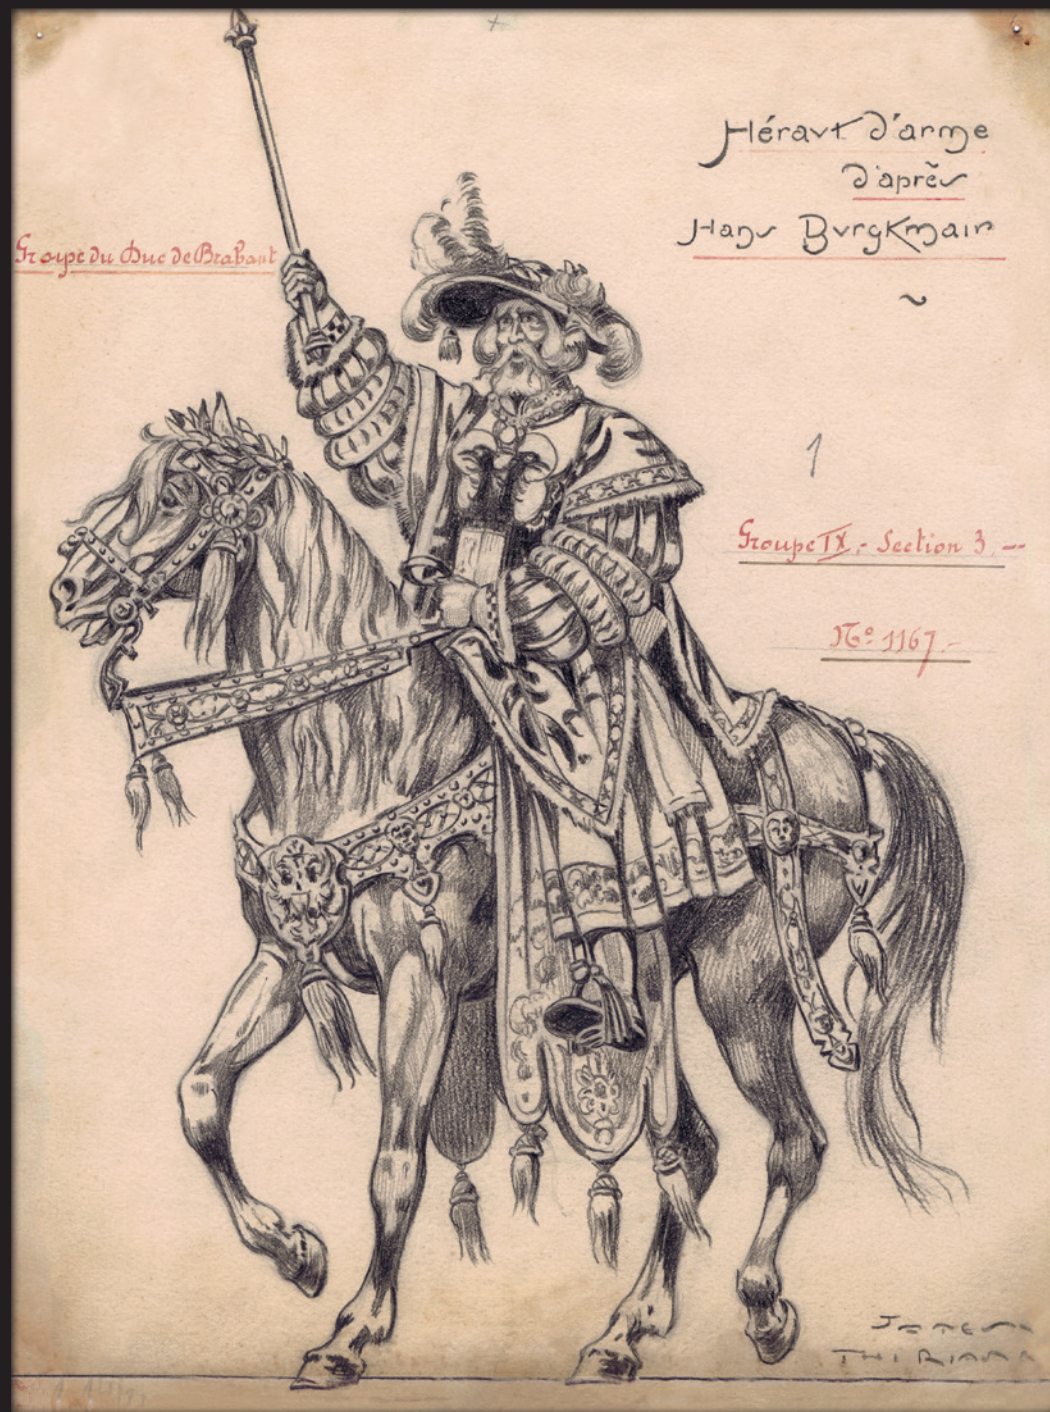 Héravt d'arme
d'après
Hans Bvrgkmair
~
Groupe du Duc de Brabant
1
Groupe IX.- Section 3.--
No. 1167.-
James
Thiriar